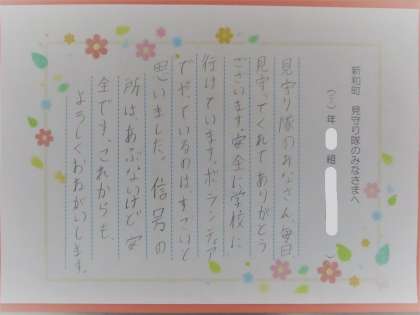 新和町　見守り隊のみなさまへ
（　）年　組　　　）
見守り隊のみなさん、毎日
見守ってくれてありがとう
ございます。安全に学校に
行けています。ボランティア
でやっているのはすごいと
思いました。信号の
所はあぶないけど安
全です。これからも、
よろしくおねがいします。